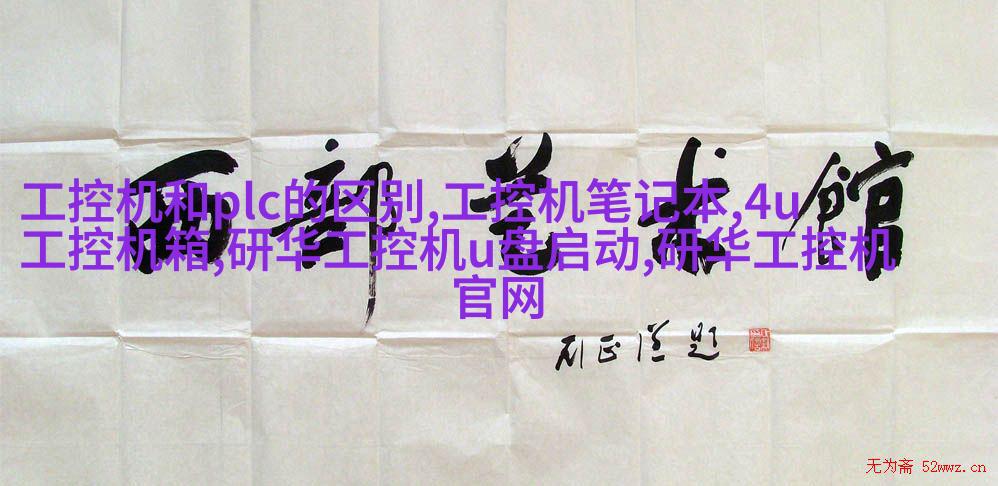 西部 館
工控机和plc的区别,工控机笔记本,4u
工控机箱,研华工控机u盘启动,研华工控机
官网
正 题
无为斋 52wwz.cn